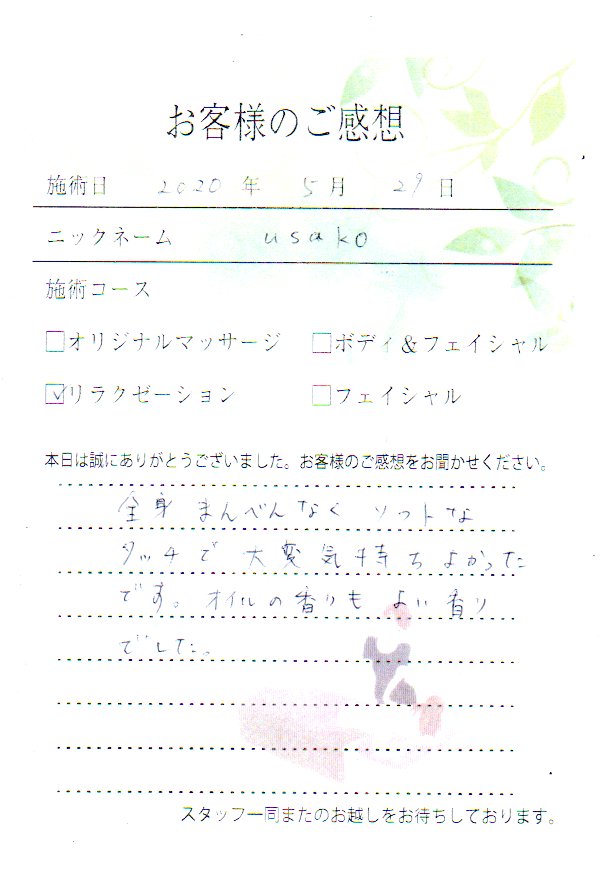 お客様のご感想
施術日 2020 年 5 月 29 日
ニックネーム usako
施術コース
□オリジナルマッサージ □ボディ＆フェイシャル
☑リラクゼーション □フェイシャル
本日は誠にありがとうございました。お客様のご感想をお聞かせください。
全身 まんべんなく ソフトな
タッチで 大変気持ちよかった
です。オイルの香りも よい香り
でした。
スタッフ一同またのお越しをお待ちしております。